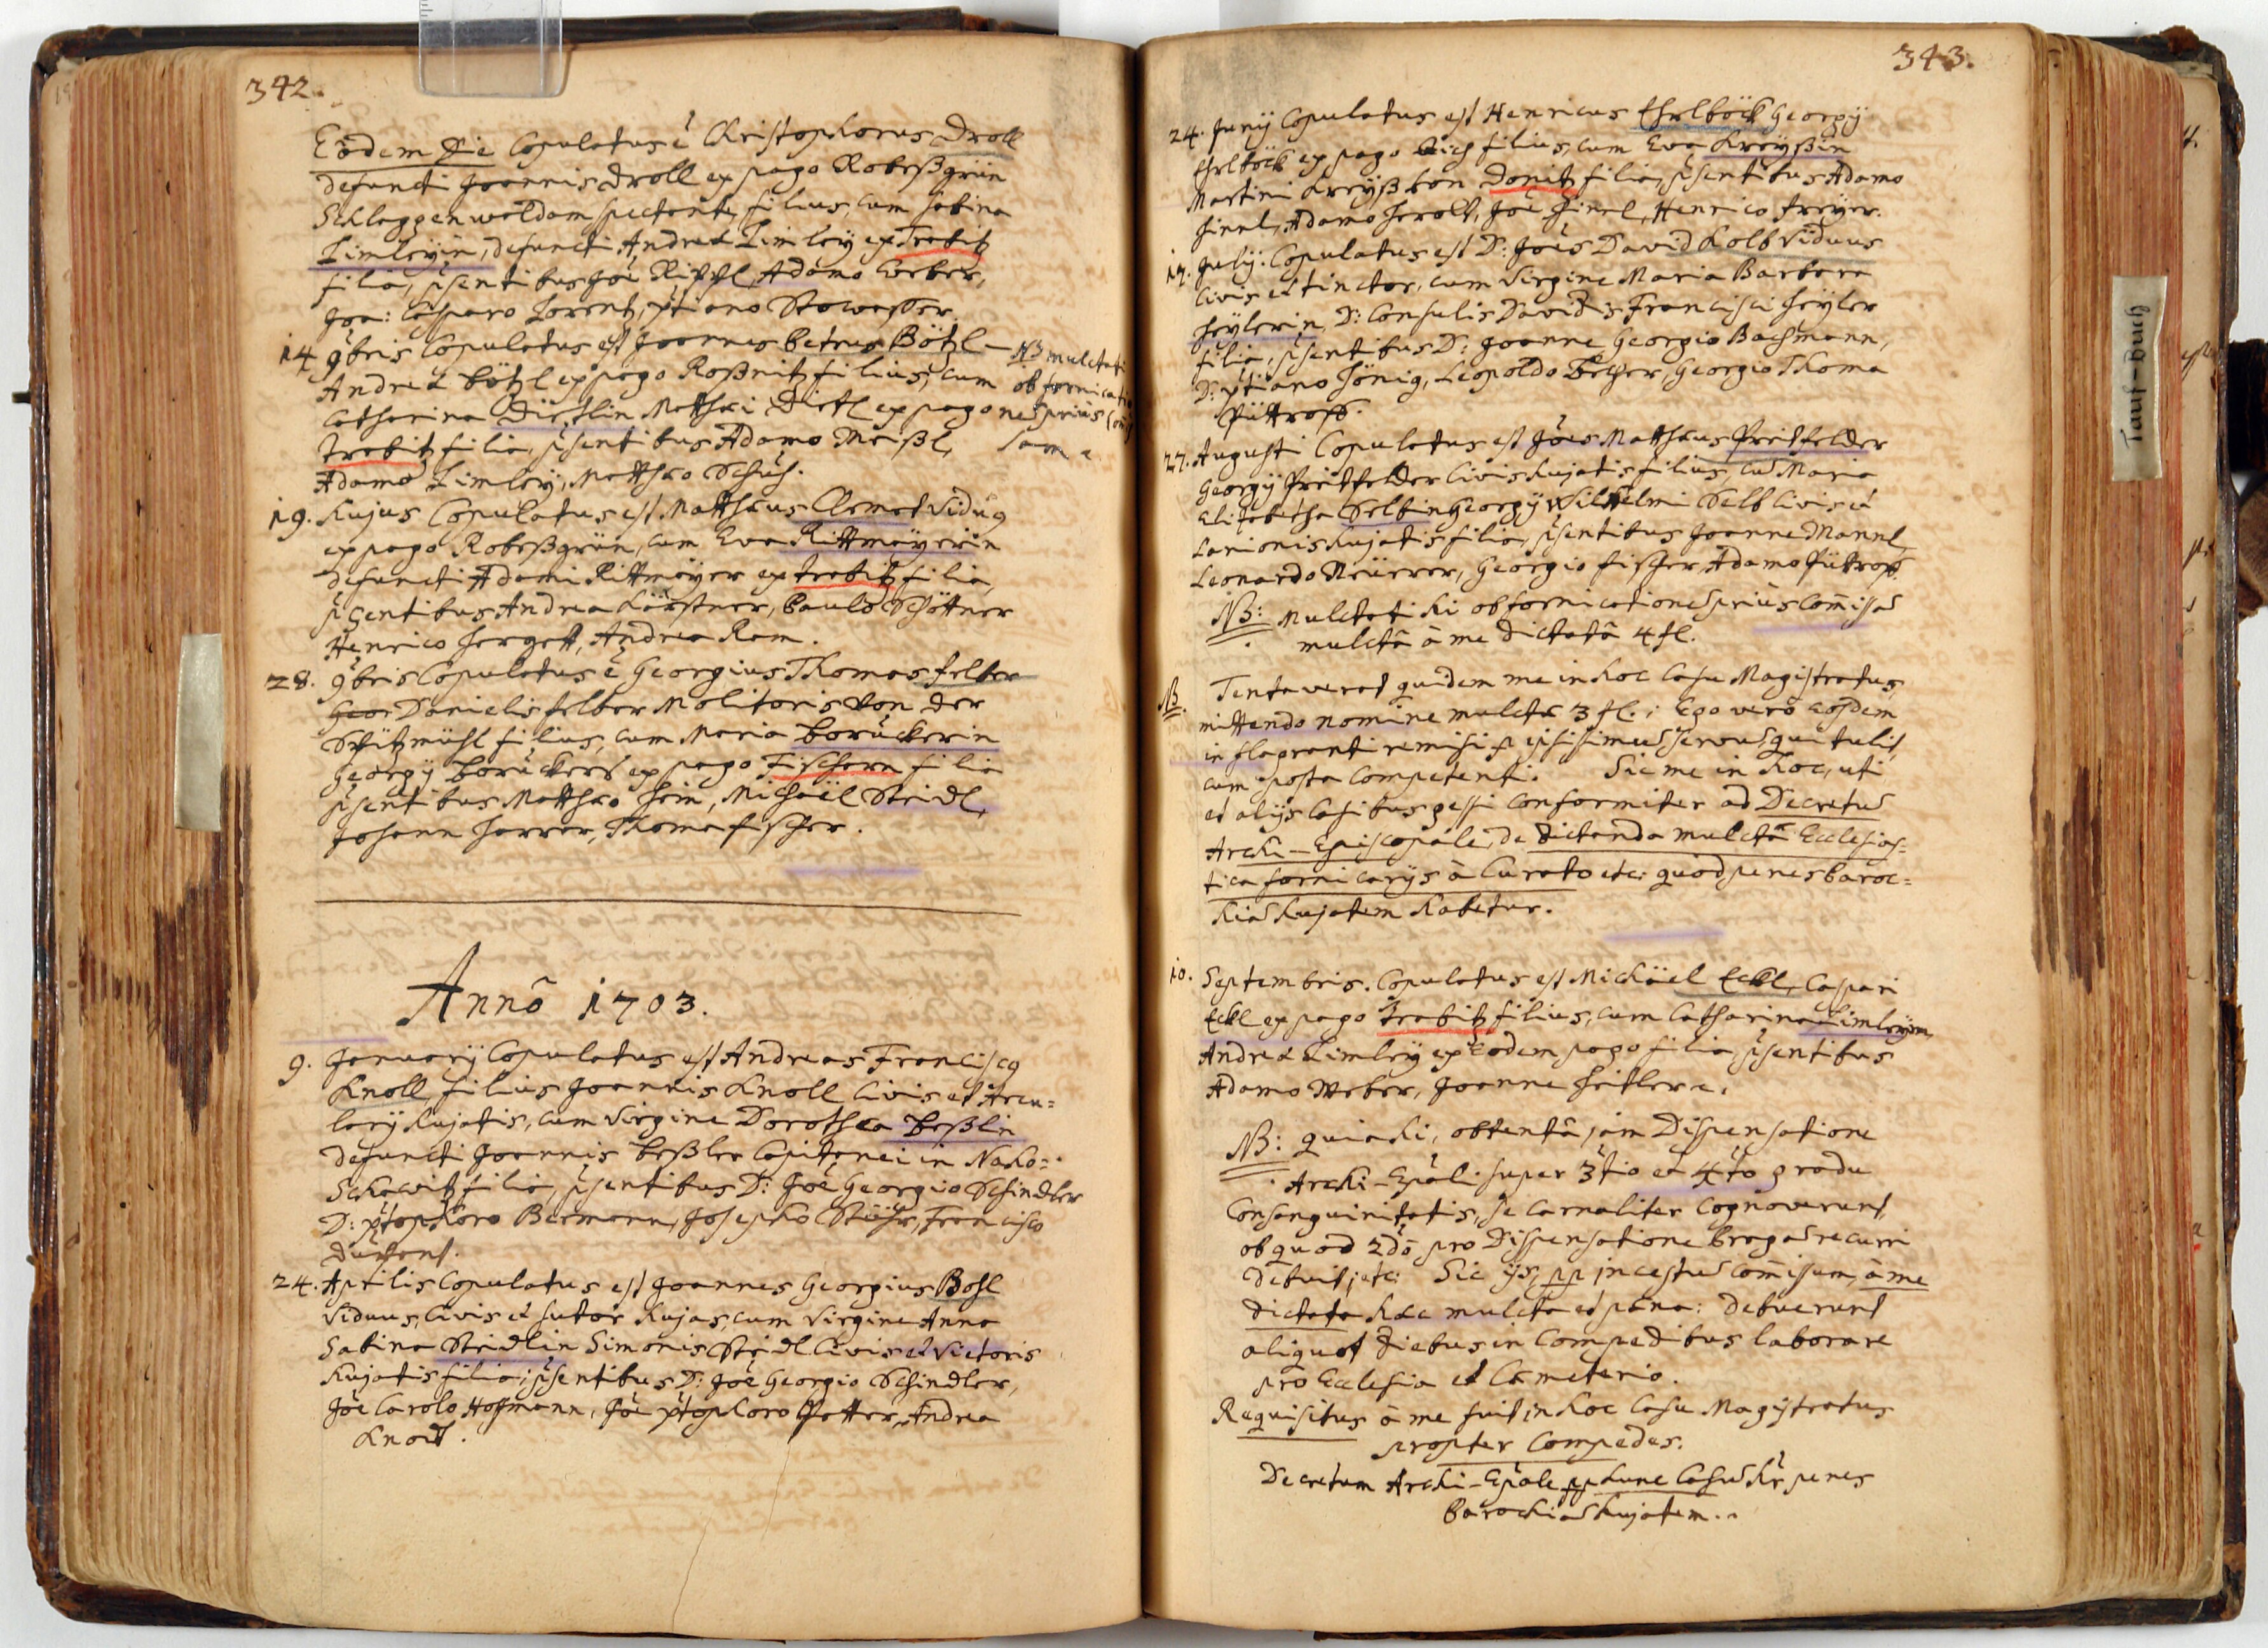 342.
Eodem die Copulatus ē Christophorus Droll
defuncti Joannis Droll ex pago Robeßgrün
Schlaggenwaldam spectante, filius, cum Sabina
Limleÿin, defuncti Andreæ Limleÿ ex Trabitz
filia, p̄sentibus Joē Rippl, Adamo Weber,
Joa: Casparo Lorentz, xtiano Stowasser.
14. 9bris Copulatus est Joannes Petrus Bötzl – NB mulctati
Andreæ Bötzl ex pago Roßnitz filius, cum ob fornicatio
Catharina Dietlin Matthæi Dietl ex pago nē prius com̄is
Trabitz filia, p̄sentibus Adamo Meißl, sam
Adamo Limleÿ, Matthæo Schuh.
19. hujus Copulatus est Matthæus Clement Viduus
ex pago Robeßgrün, cum Eva Rittmaÿerin
defuncti Adami Rittmaÿer ex Trabitz filia,
p̄sentibus Andrea Karstner, Paulo Schöttner
Henrico Herget, Andrea Ram.
28. 9bris Copulatus ē Georgius Thomas Felber
Geor Danielis Felber Molitoris von der
Spitzmühl filius, cum Maria Boruckerin
Georgÿ Boruckers ex pago Fischern filia
p̄sentibus Matthæo Hein, Michaël Steidl,
Johann Harrer, Thoma Fischer.
Annō 1703.
9. Januarÿ Copulatus est Andreas Franciscus
Knoll, filius Joannis Knoll Civis et Arcu=
larÿ hujatis, cum Virgine Dorothea Beßlin
defuncti Joannis Beßler Capitanei in Naho=
schawitz filia, p̄sentibus D: Joē Georgio Schindler
D: x̄tophoro Bermann, Josepho Stöhr, Francisco
24. Aprilis Copulatus est Joannes Georgius Bohl
Viduus, Civis et Sutor hujas, cum Virgine Anna
Sabina Steidlin Simonis Steidl Civis et Victoris
hujatis filia, p̄sentibus D: Joē Georgio Schindler,
Joē Carolo Hoffmann, Joē x̄tophoro Gatter, Andrea
343.
24. Junÿ Copulatus est Henricus Ehrlböck Georgÿ
Ehrlböck ex pago Aich filius, cum Eva Kreÿßin
Martini Kreÿß von Donitz filia, p̄sentibus Adamo
Hinnl, Adamo Herolt, Joē Hinnl, Henrico Freÿer.
17. Julÿ: Copulatus est D: Joēs David Kolb Viduus
Civis et tinctor, cum Virgine Maria Barbara
Heÿlerin, D: Consulis Davidis Francisci Heÿler
filia, p̄sentibus D: Joanne Georgio Bachmann,
D: x̄tiano Hönig, Leopoldo Becher, Georgio Thoma
Püttroff.
27. Augusti Copulatus est Joēs Matthæus Preitfelder
Georgÿ Preitfelder Civis hujatis filius, cū Maria
Elisabetha Selbin Georgÿ Wilhelmi Selb Civis et
Lanionis hujatis filia, p̄sentibus Joanne Mannl,
Leonardo Neuerer, Georgio Fischer, Adamo Püttroff.
NB: Mulctati hi ob fornicationē prius com̄isā
mulctâ à me dictatâ 4 fl.
NB. Tentaverat quidem me in hoc Casu Magistratus
mittendo nomine mulctæ 3 fl.; Ego vero eosdem
in flagranti remisi p̄ ipsissimū servū, qui tulit,
cum rposta competenti. Sic me in hoc, uti
et alÿs casibus gessi conformiter ad Decretū
Archi-Episcopale, de dictanda mulctâ Ecclesias=
tica fornicarÿs à Curato etc: quod penes Baroc=
hiā hujatem habetur.
10. Septembris. Copulatus est Michaël Eckl, Caspari
Eckl ex pago Trabitz filius, cum Catharina Limleÿin
Andreæ Limleÿ ex Eodem pago filia, p̄sentibus
Adamo Weber, Joanne Heitler
NB: quia hi, obtentâ jam Dispensatione
Archi-Ep̄ali super 3tio et 4to gradu
Consanguinitatis, se carnaliter cognoverunt,
ob quod 2dō pro Dispensatione Pragā recurri
debuit, etc: Sic ijs, pp incestū com̄isum, à me
dictata hæc mulcta et pæna: debuerunt
aliquot diebus in Compedibus laborare
pro Ecclesia et Cæmeterio.
Requisitus à me fuit in hoc Casu Magistratus
propter Compedes.
Decretum Archi-Ep̄ale pp hunc Casū hr̄ penes
Barochiā hujatem.